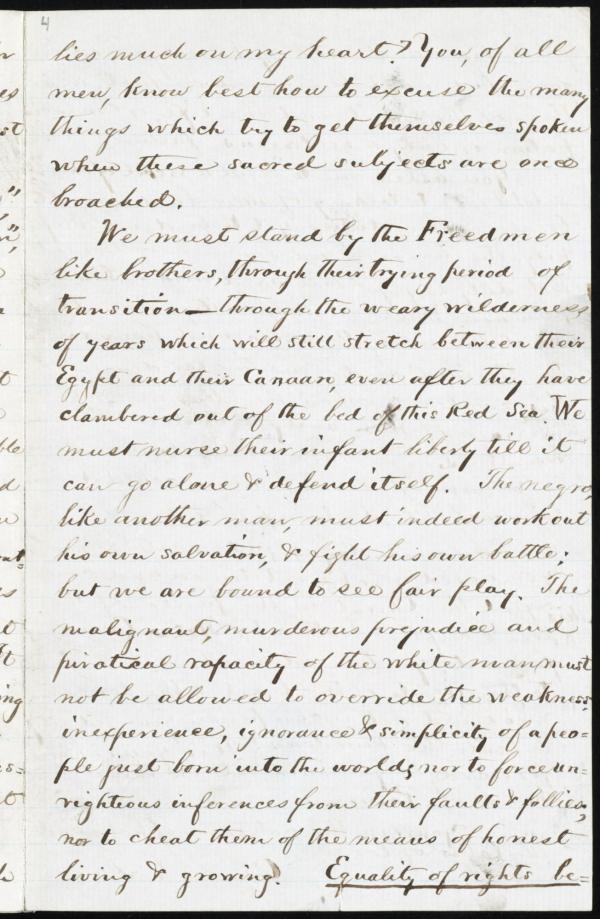 4
lies much on my heart? You, of all
men, know best how to excuse the many
things which try to get themselves spoken
when these sacred subjects are once
broached.
We must stand by the Freedmen
like brothers, through their trying period of
transition — through the weary wilderness
of years which will still stretch between their
Egypt and their Canaan, even after they have
clambered out of the bed of this Red Sea. We
must nurse their infant liberty till it
can go alone & defend itself. The negro,
like another man, must indeed work out
his own salvation, & fight his own battle;
but we are bound to see fair play. The
malignant, murderous prejudice and
piratical rapacity of the white man must
not be allowed to override the weakness,
inexperience, ignorance & simplicity of a peo=
ple just born into the world; nor to force un=
rightious inferences from their faults & follies,
nor to cheat them of the means of honest
living & growing. Equality of rights be=